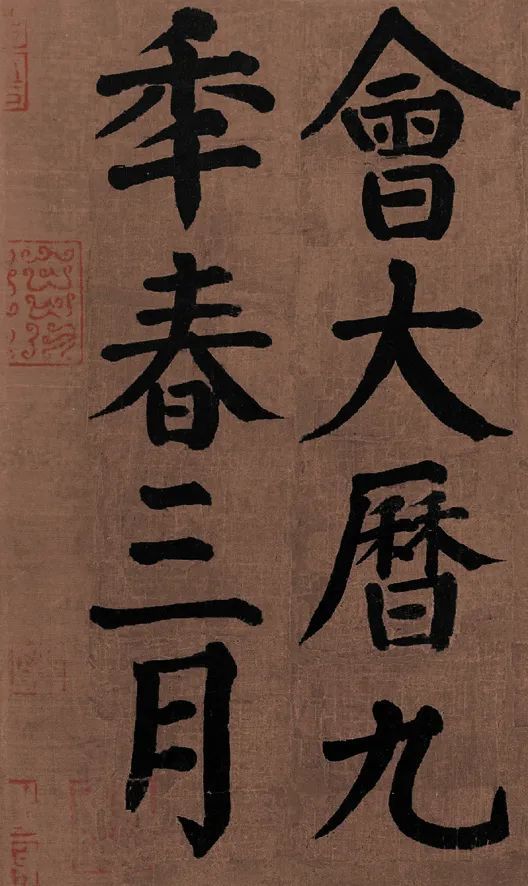 會大曆九
秊春三月